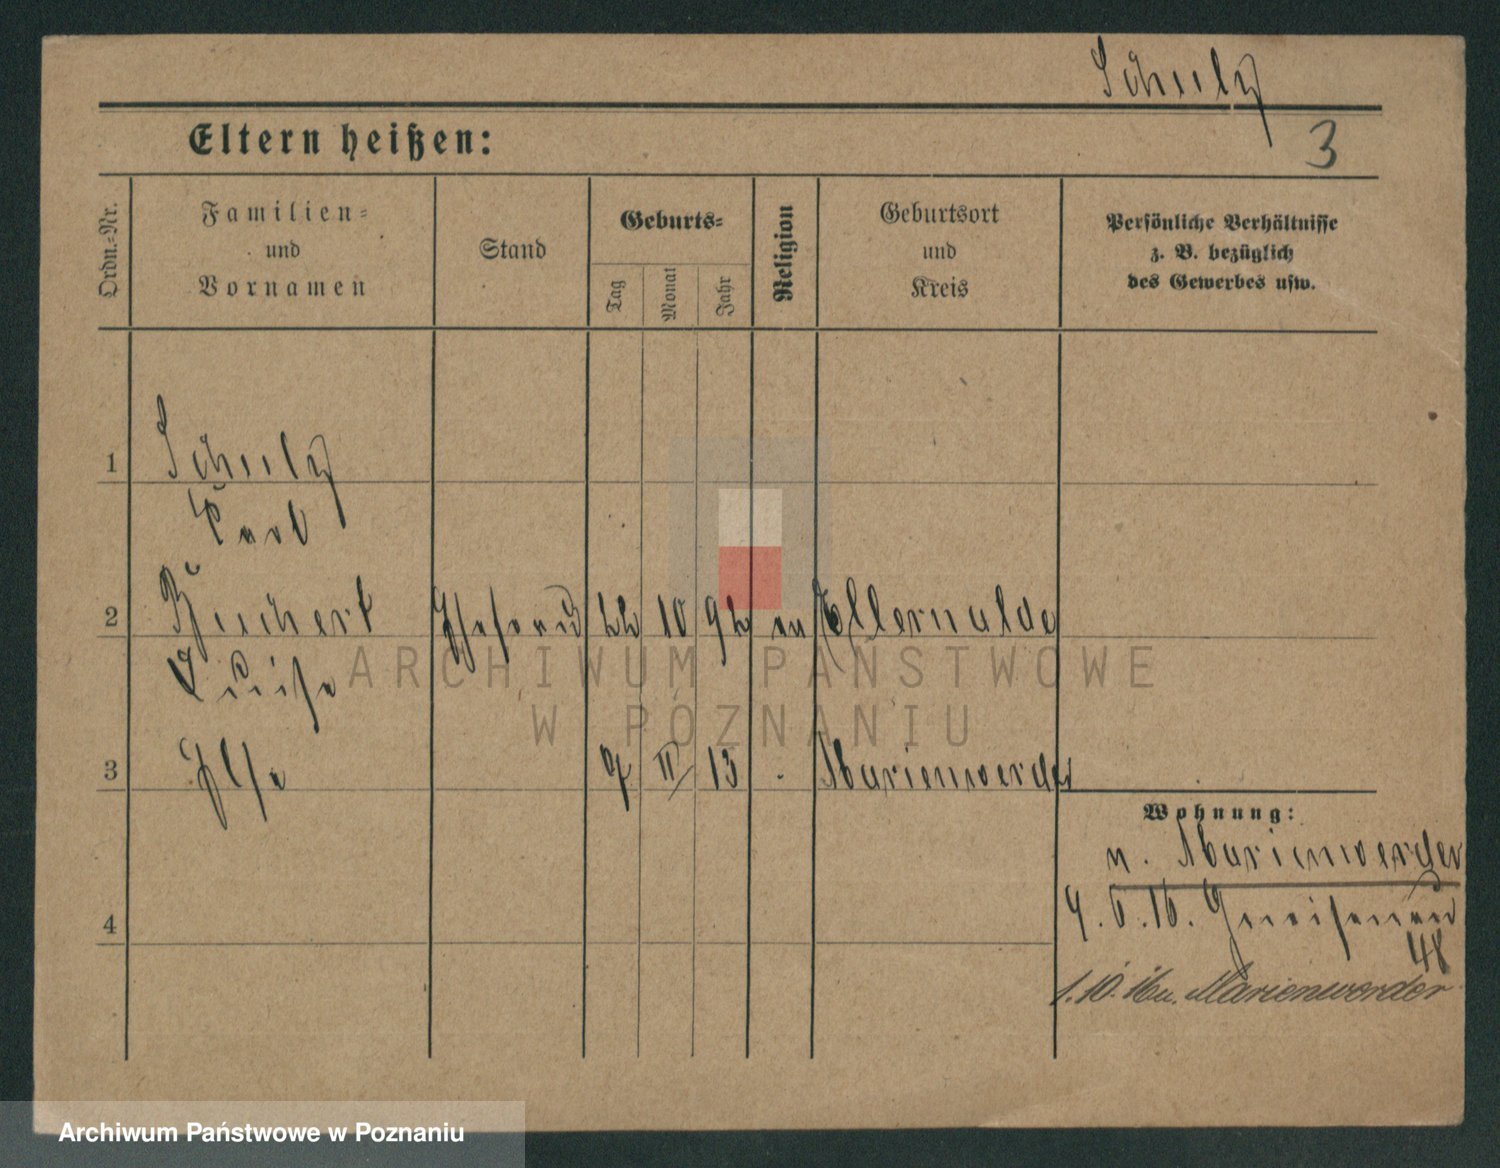 Schulz
3
Eltern heißen:
Ordn.-Nr.
Familien-
und
Vornamen
Stand
Geburts-
Tag
Monat
Jahr
Religion
Geburtsort
und
Kreis
Persönliche Verhältnisse
z. B. bezüglich
des Gewerbes usw.
1 Schulz
Karl
2 10 ev Ellerwalde
Luise
ARCHIWUM PAŃSTWOWE
W POZNANIU
3 Ilse II 13 Marienwerder
Wohnung:
n. Marienwerder
Gneisenau
48
4
1.10.16 n. Marienwerder
Archiwum Państwowe w Poznaniu